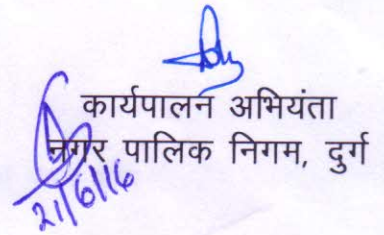 कार्यपालन अभियंता
नगर पालिक निगम, दुर्ग
21/6/16